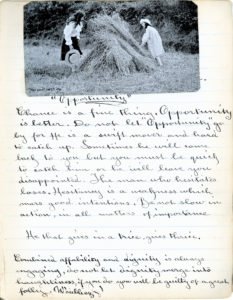 "Opportunity"
Chance is a fine thing. Opportunity
is better. Do not let "Opportunity" go
by for He is a swift mover and hard
to catch up. Sometimes he will come
back to you but you must be quick
to catch him or he will leave you
disappointed. He is one who hesitates
loses. Hesitancy is a weakness which
mars good intentions. Do not slow in
action, in all matters of importance.
He that gives in a trice, gives thrice.
Combined affability and dignity is always
engaging, do not let dignity merge into
haughtiness, if you do you will be guilty of a great
folly.